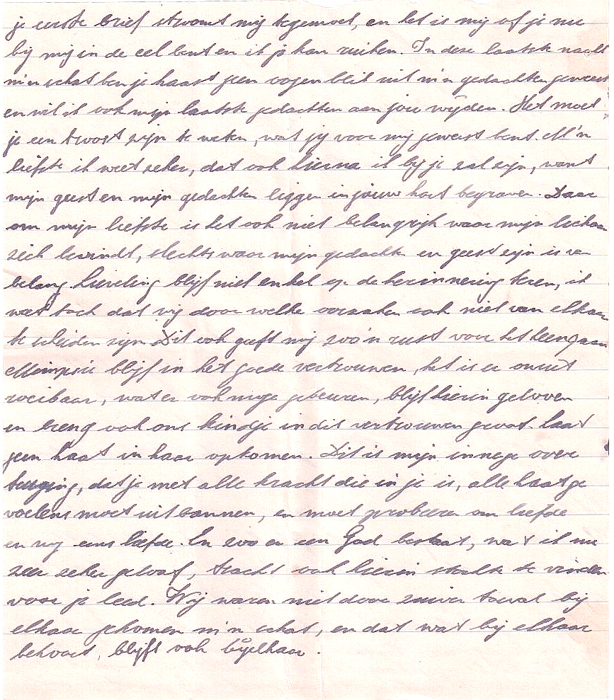 je eerste brief stroomt mij tegemoet, en het is mij of je nu
bij mij in de cel bent en ik je kan ruiken. In deze laatste nacht
m'n schat ben je haast geen oogenblik uit m'n gedachten geweest
en wil ik ook mijn laatste gedachten aan jou wijden. Het moet
je een troost zijn te weten, wat jij voor mij geweest bent. M'n
liefste ik weet zeker, dat ook hierna ik bij je zal zijn, want
mijn geest en mijn gedachten liggen in jouw hart begraven. Daar
om mijn liefste is het ook niet belangrijk waar mijn lichaam
zich bevindt, slechts waar mijn gedachte en geest zijn is van
belang. Lieveling blijf niet enkel op de herinnering teren, ik
weet toch dat wij door welke oorzaken ook niet van elkaar
te scheiden zijn. Dit ook geeft mij zoo'n rust voor het heengaan
blijf in het goede vertrouwen, het is er onuit
roeibaar, wat er ook moge gebeuren, blijf hierin gelooven
en breng ook ons kindje in dit vertrouwen groot. laat
geen haat in haar opkomen. Dit is mijn innege over
tuiging, dat je met alle kracht die in je is, alle haatge
voelens moet uitbannen, en moet probeeren om liefde
en nog eens liefde. En zoo er een God bestaat, wat ik nu
zeer zeker geloof, tracht ook hierin sterkte te vinden
voor je leed. Wij waren niet door zuiver toeval bij
elkaar gekomen m'n schat, en dat wat bij elkaar
behoort, blijft ook bijelkaar.